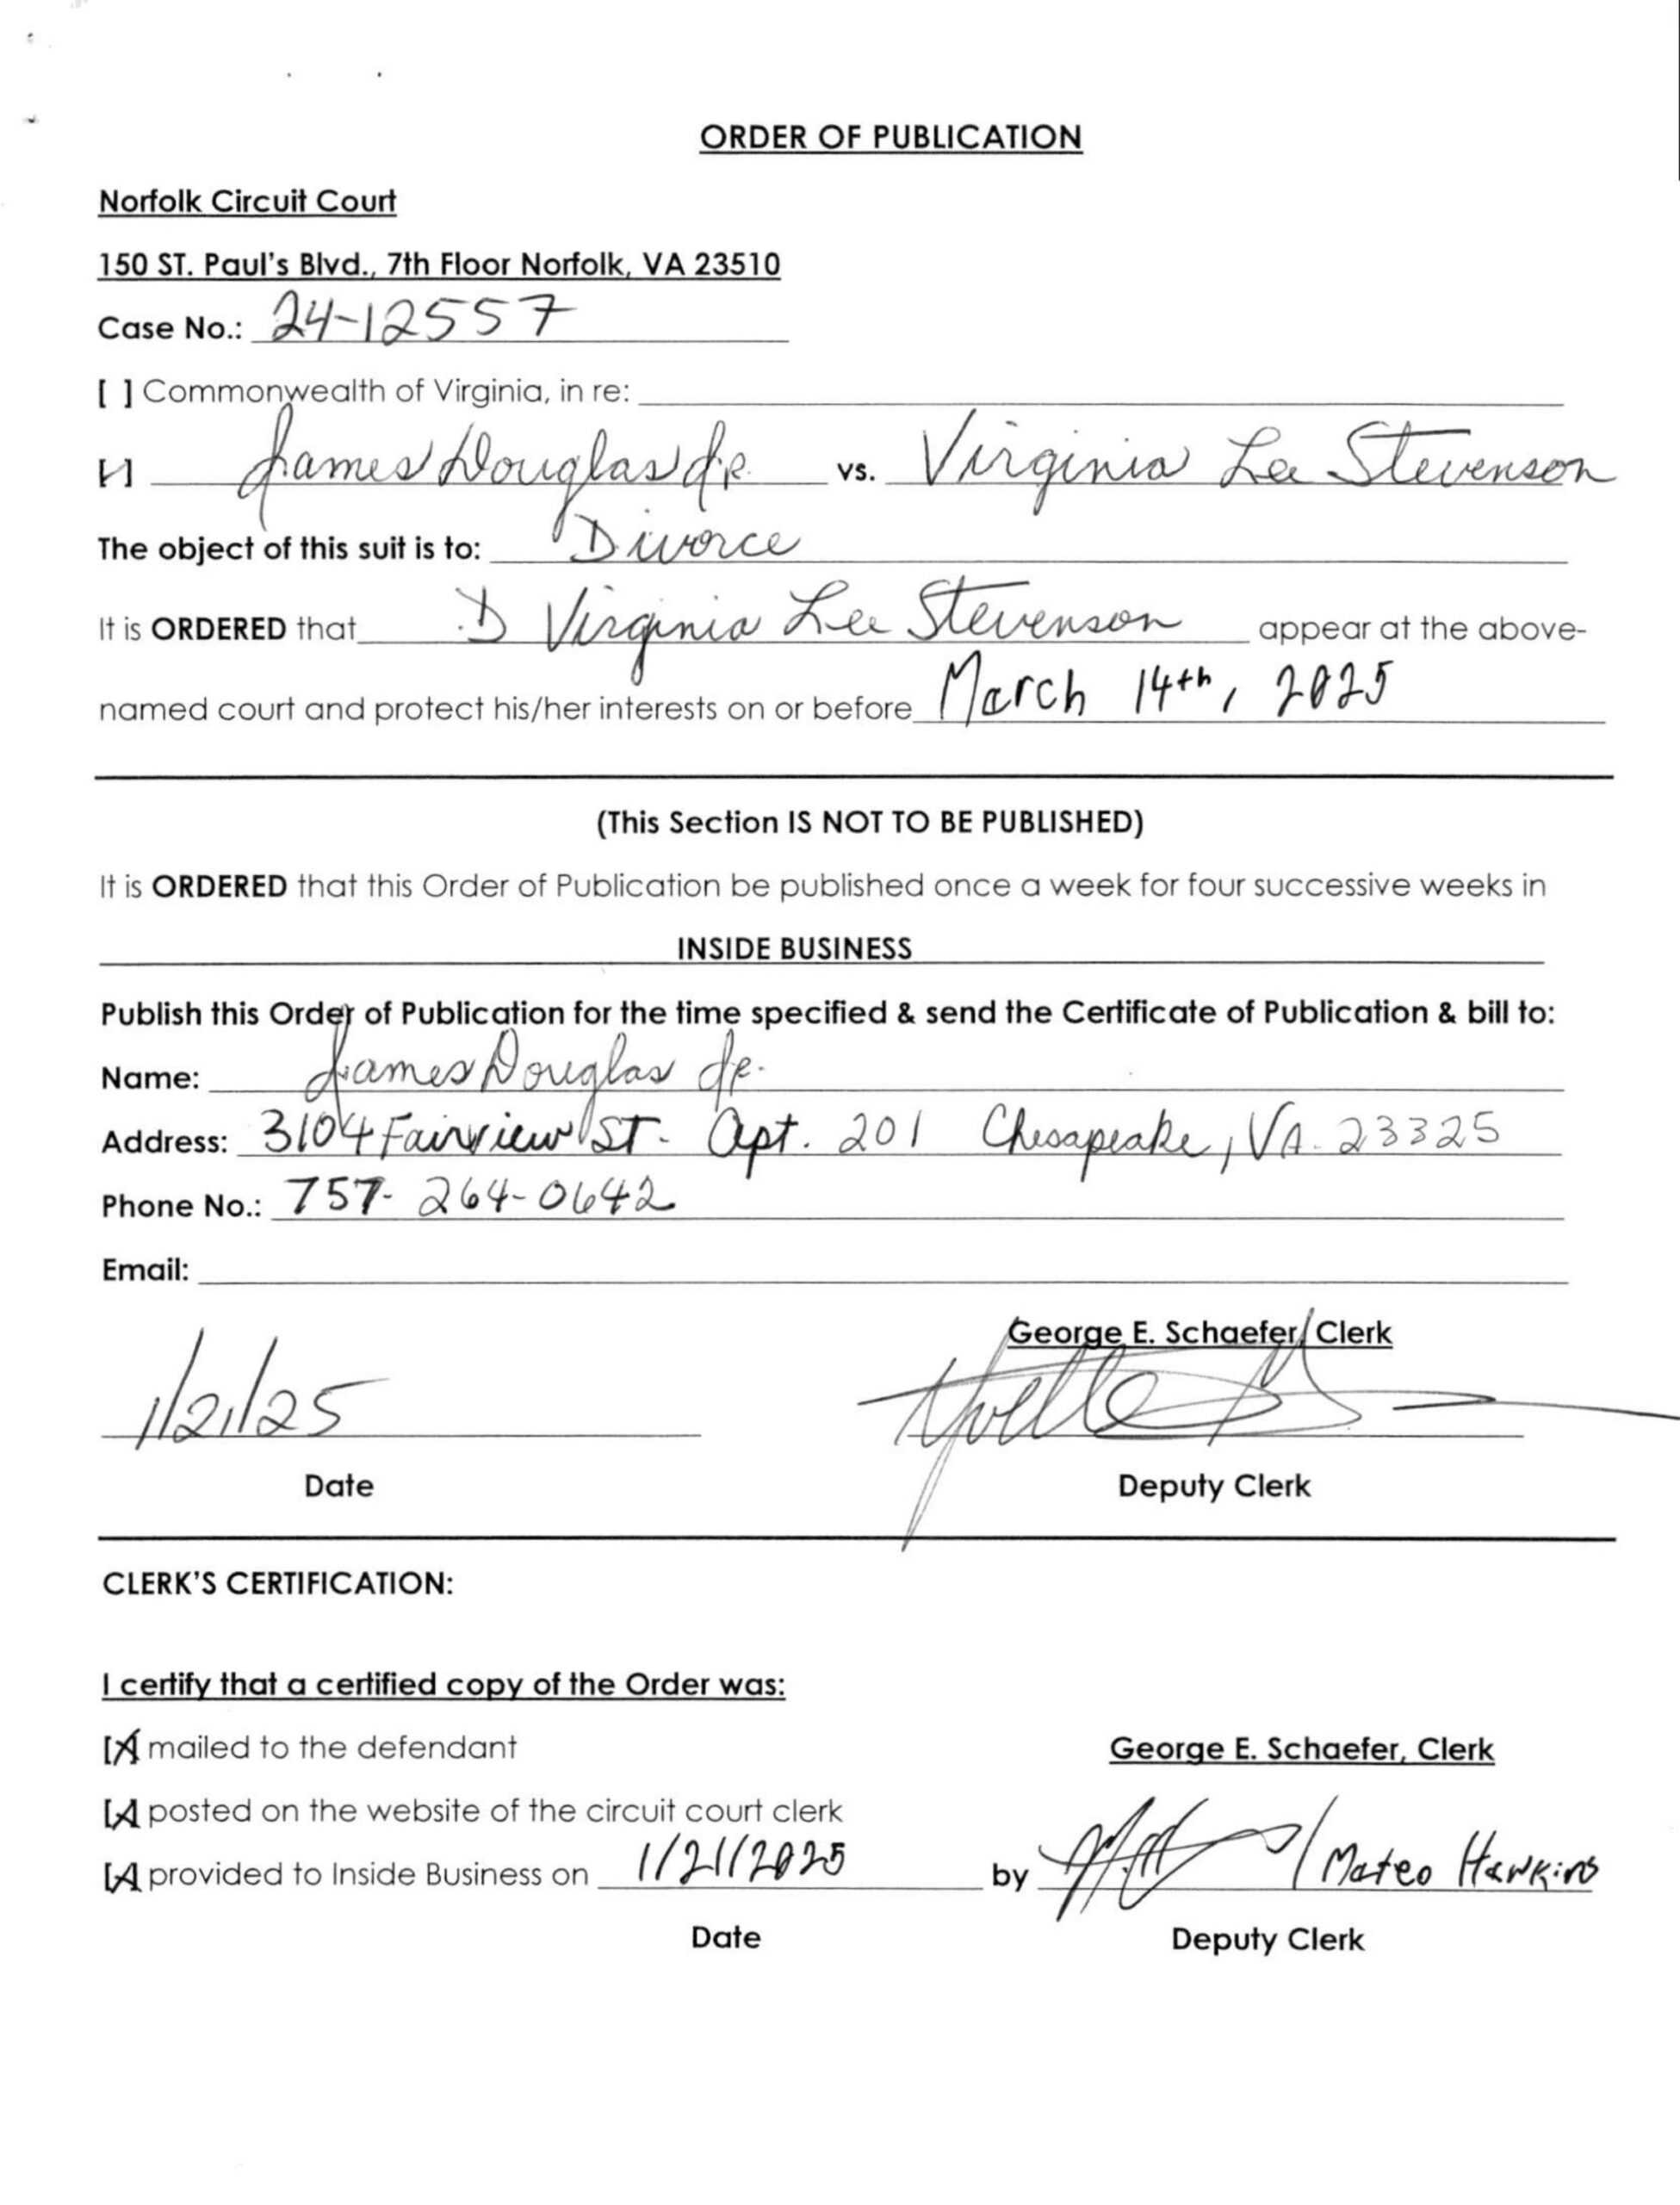 ORDER OF PUBLICATION
Norfolk Circuit Court
150 ST. Paul's Blvd., 7th Floor Norfolk, VA 23510
Case No.: 24-12557
[ ] Commonwealth of Virginia, in re:
[✓] James Douglas Jr. vs. Virginia Lee Stevenson
The object of this suit is to: Divorce
It is ORDERED that D Virginia Lee Stevenson appear at the above-
named court and protect his/her interests on or before March 14th, 2025
(This Section IS NOT TO BE PUBLISHED)
It is ORDERED that this Order of Publication be published once a week for four successive weeks in
INSIDE BUSINESS
Publish this Order of Publication for the time specified & send the Certificate of Publication & bill to:
Name: James Douglas Jr.
Address: 3104 Fairview ST. Apt. 201 Chesapeake, VA. 23325
Phone No.: 757-264-0642
Email:
George E. Schaefer, Clerk
1/21/25
Date Deputy Clerk
CLERK'S CERTIFICATION:
I certify that a certified copy of the Order was:
[X] mailed to the defendant George E. Schaefer, Clerk
[X] posted on the website of the circuit court clerk
[X] provided to Inside Business on 1/21/2025 by / Mateo Hawkins
Date Deputy Clerk